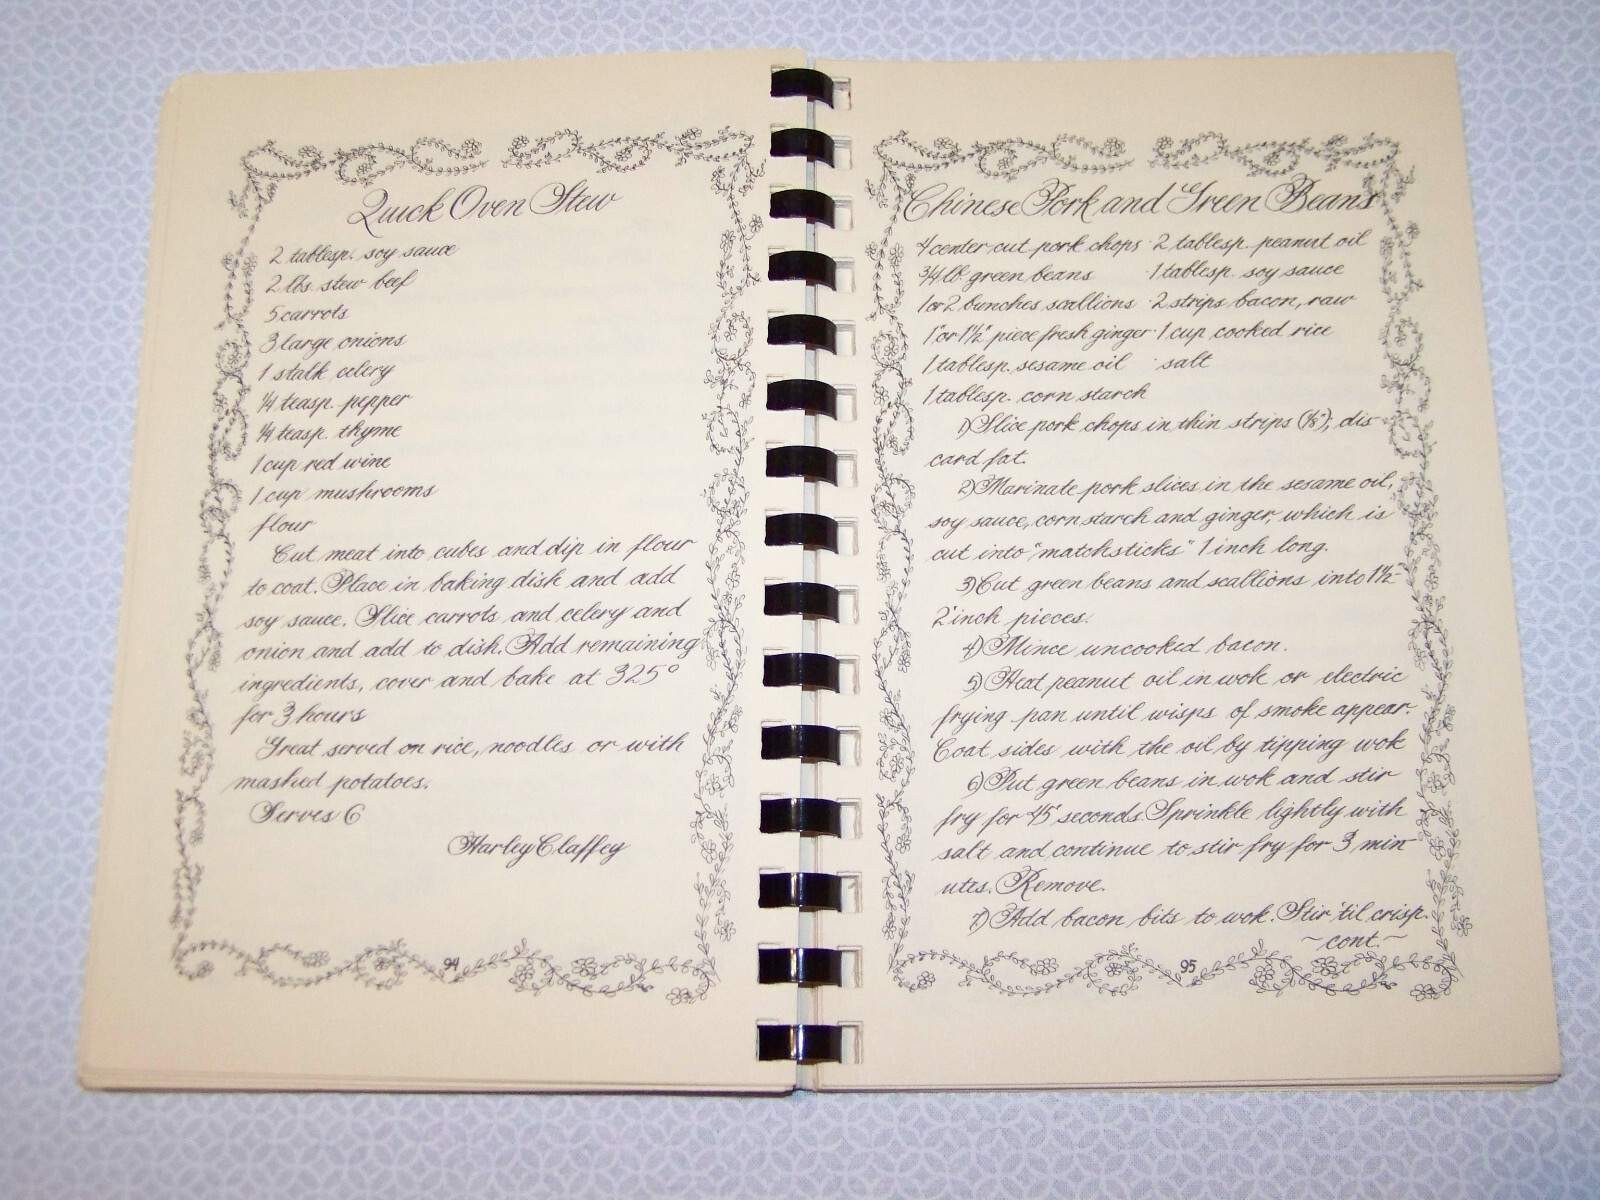 Quick Oven Stew
2 tablesp. soy sauce
2 lbs. stew beef
5 carrots
3 large onions
1 stalk celery
1/4 teasp. pepper
1/4 teasp. thyme
1 cup red wine
1 cup mushrooms
flour
Cut meat into cubes and dip in flour
to coat. Place in baking dish and add
soy sauce. Slice carrots and celery and
onion and add to dish. Add remaining
ingredients, cover and bake at 325°
for 3 hours
Great served on rice, noodles or with
mashed potatoes.
Serves 6
Harley Claffey
94
Chinese Pork and Green Beans
4 center-cut pork chops · 2 tablesp. peanut oil
3/4 lb green beans · 1 tablesp. soy sauce
1 or 2 bunches scallions · 2 strips bacon, raw
1" or 1 1/2" piece fresh ginger · 1 cup cooked rice
1 tablesp. sesame oil · salt
1 tablesp. corn starch
1) Slice pork chops in thin strips (1/8"), dis-
card fat.
2) Marinate pork slices in the sesame oil,
soy sauce, corn starch and ginger, which is
cut into "matchsticks" 1 inch long.
3) Cut green beans and scallions into 1 1/2-
2 inch pieces.
4) Mince uncooked bacon.
5) Heat peanut oil in wok or electric
frying pan until wisps of smoke appear.
Coat sides with the oil by tipping wok
6) Put green beans in wok and stir
fry for 45 seconds. Sprinkle lightly with
salt and continue to stir fry for 3 min-
utes. Remove.
7) Add bacon bits to wok. Stir 'til crisp.
~cont.~
95